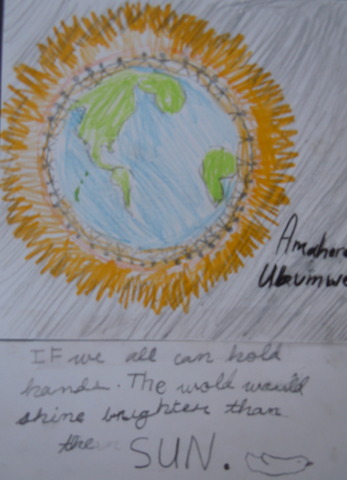 Amahoro
Ubumwe
IF we all can hold
hands. The wold would
shine brighter than
the SUN.